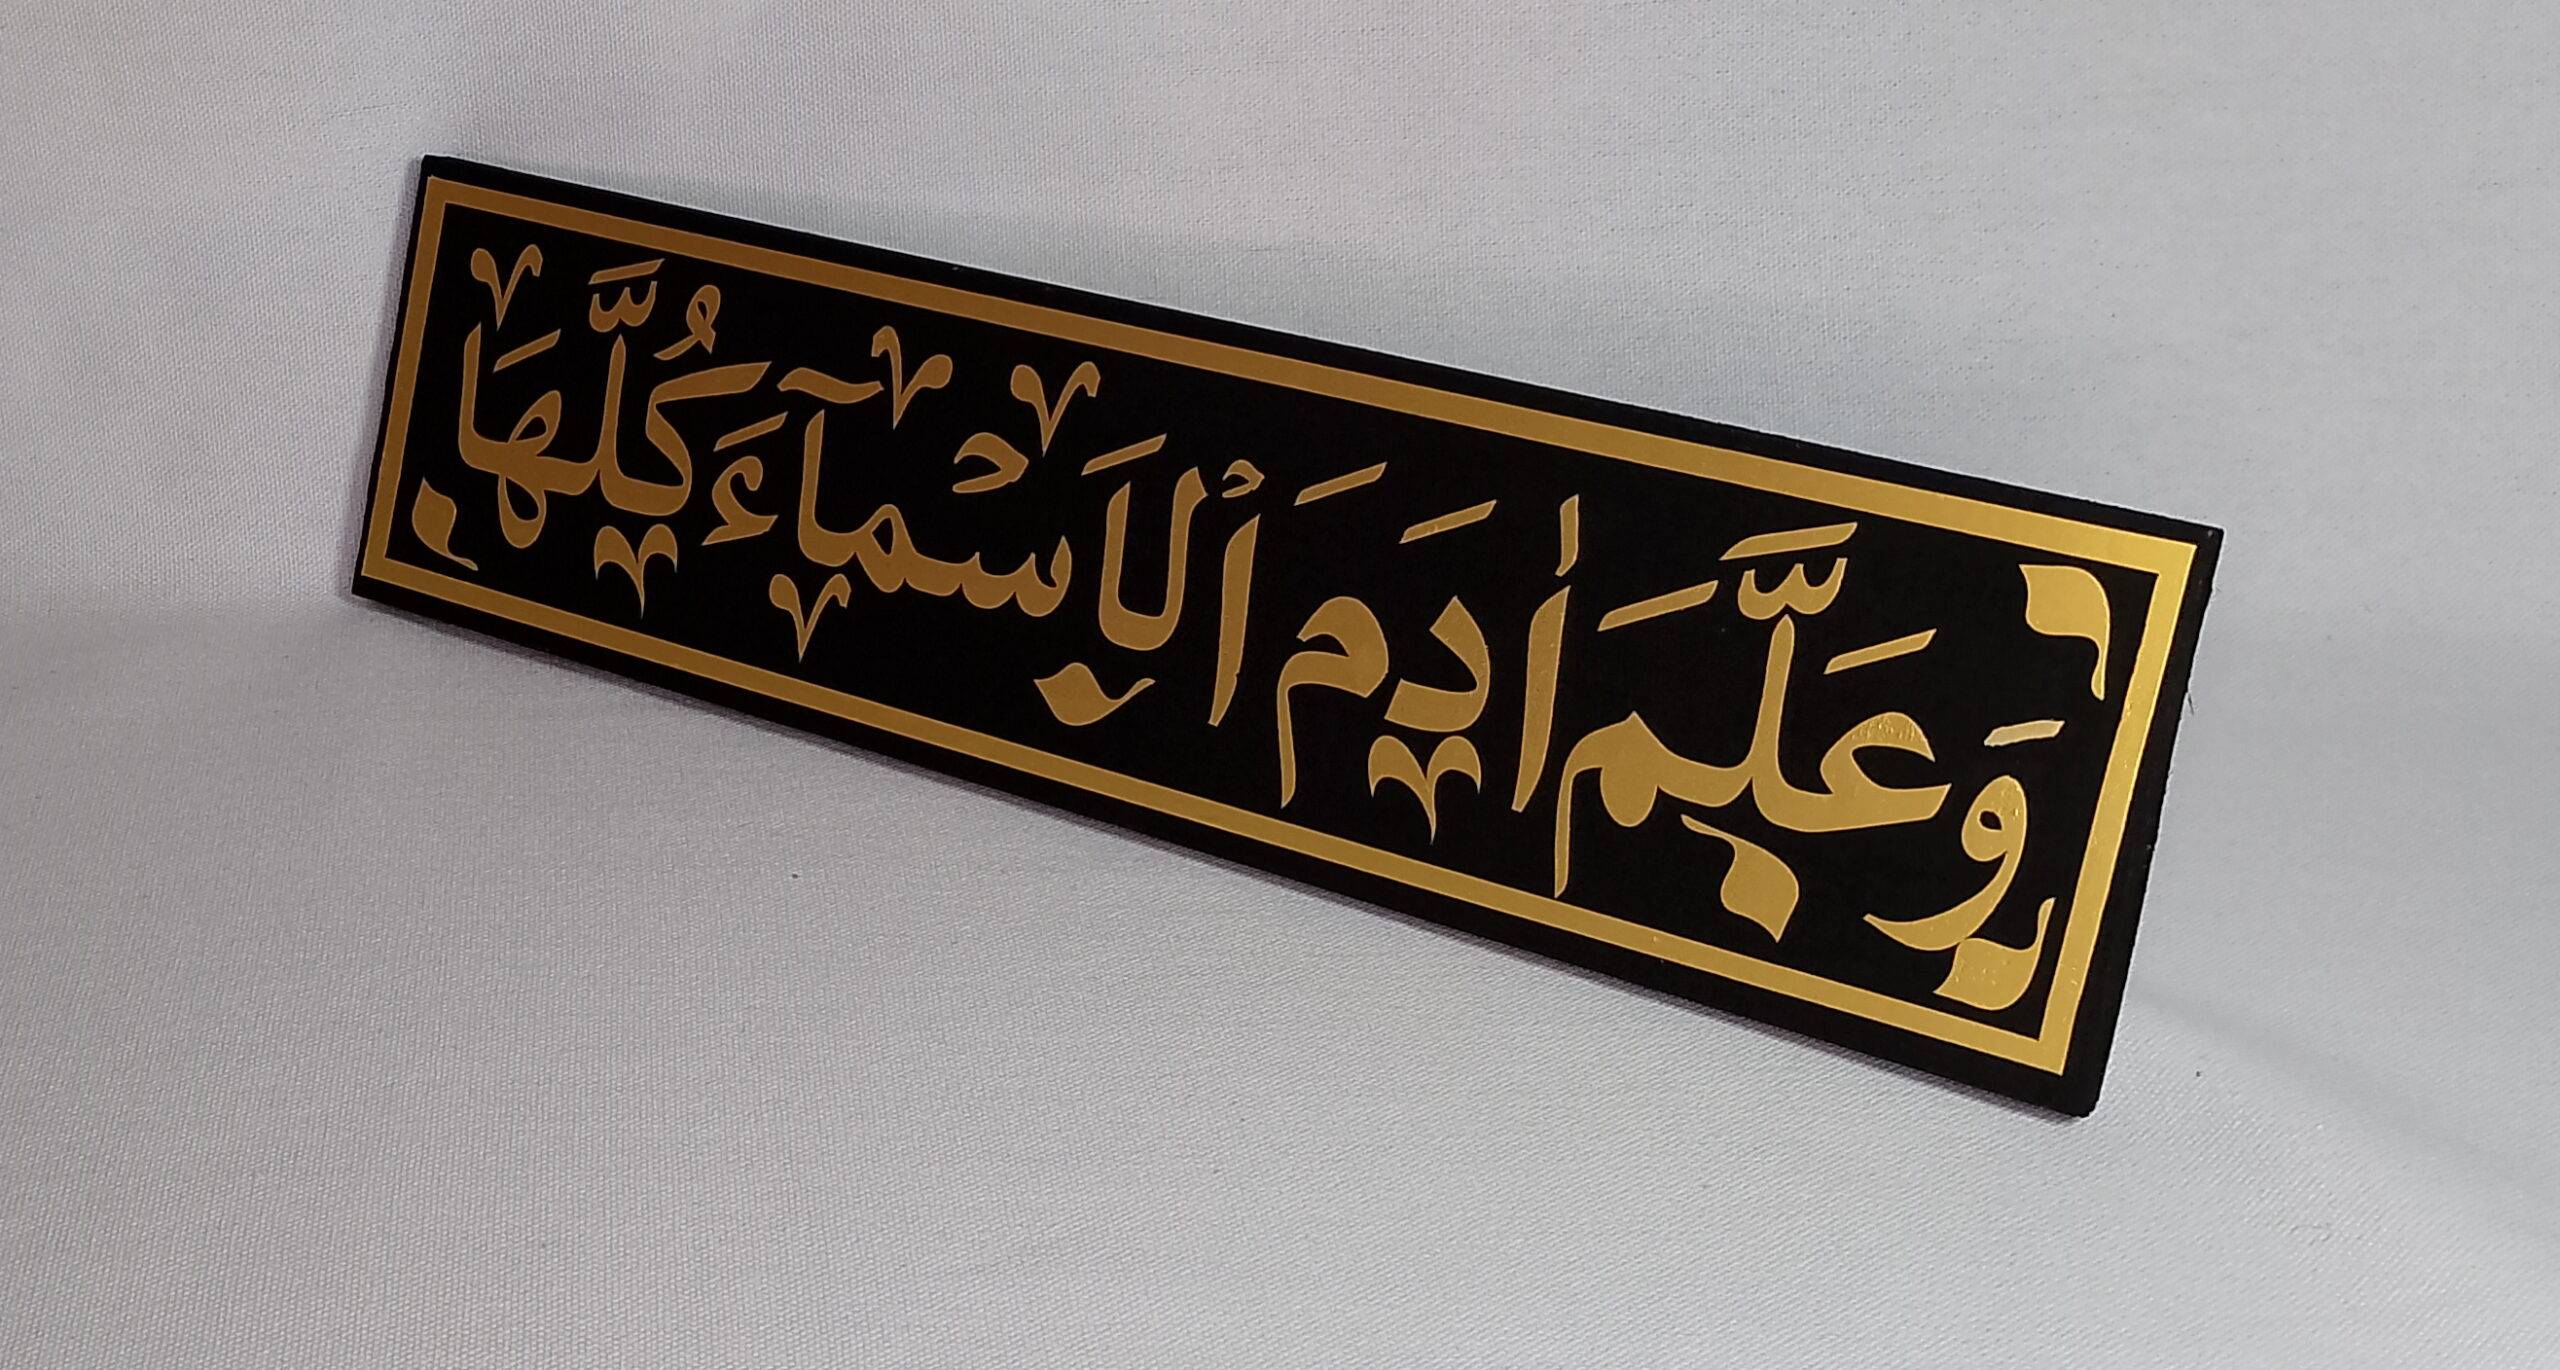 وَعَلَّمَ اٰدَمَ ٱلْاَسْمَآءَ كُلَّهَا